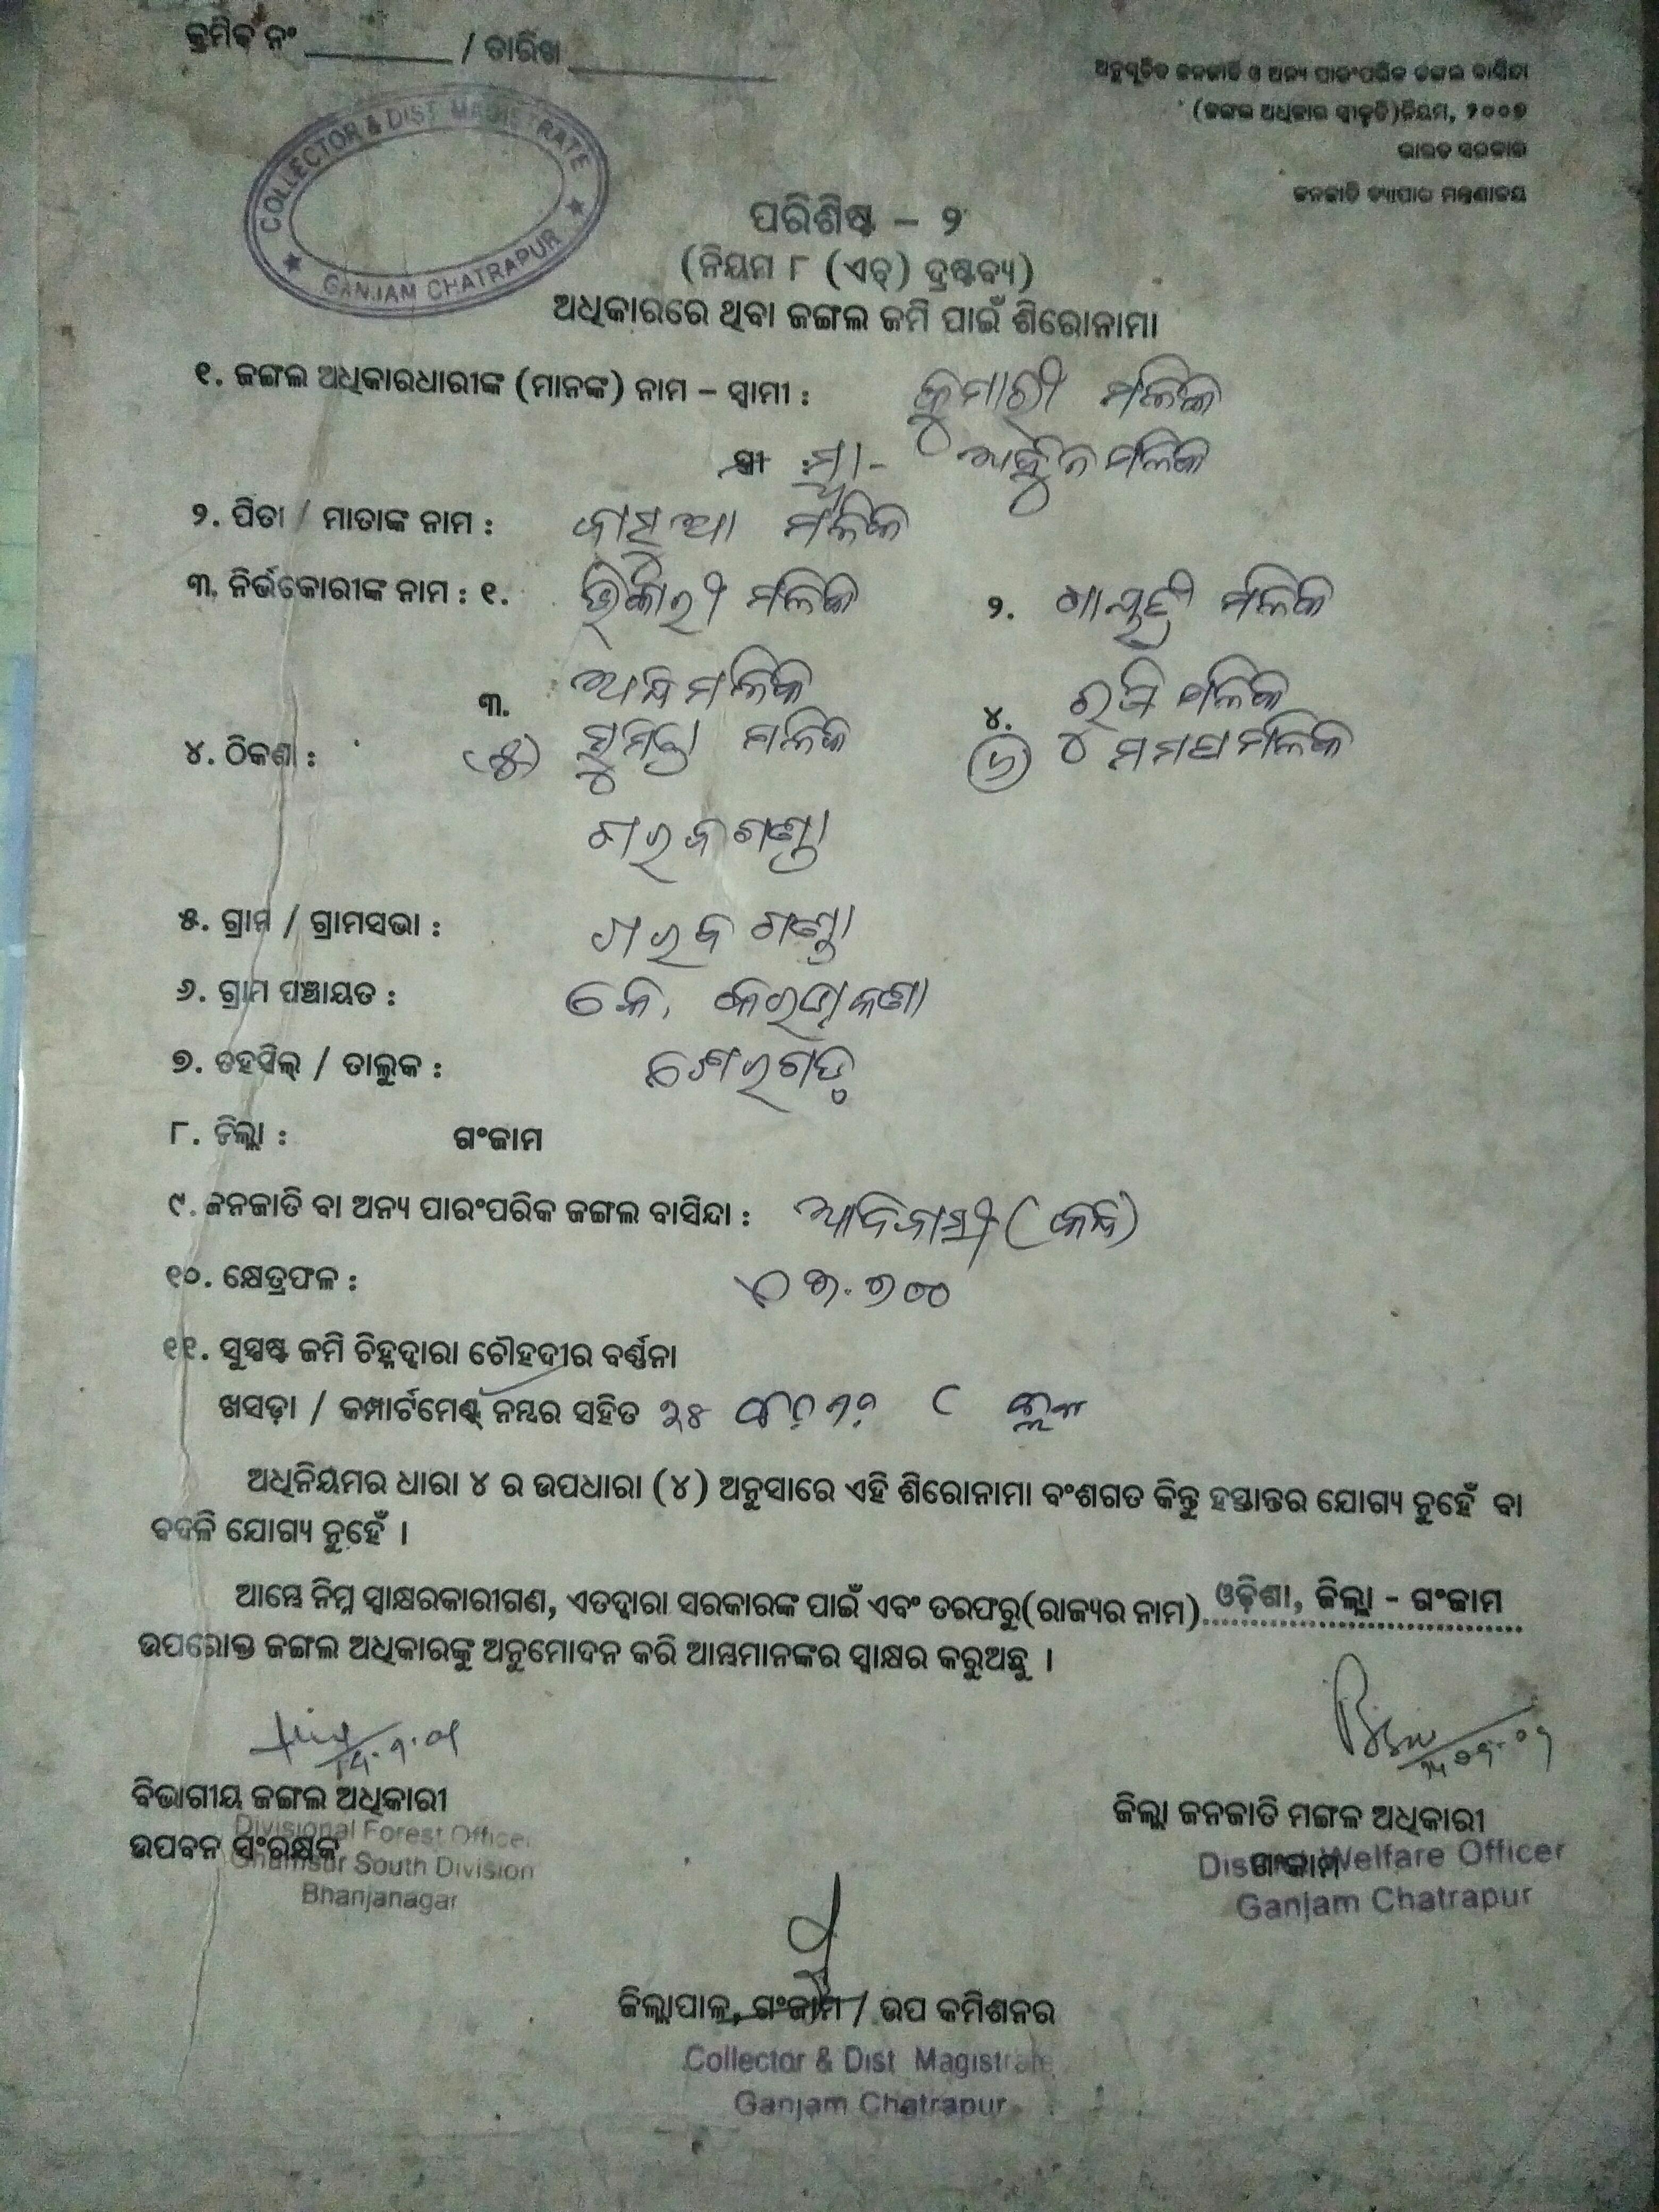 କ୍ରମିକ ନଂ ________ / ତାରିଖ ____________
ଅନୁସୂଚିତ ଜନଜାତି ଓ ଅନ୍ୟ ପାରଂପରିକ ଜଙ୍ଗଲ ବାସିନ୍ଦା
(ଜଙ୍ଗଲ ଅଧିକାର ସ୍ୱୀକୃତି)ନିୟମ, ୨୦୦୭
ଭାରତ ସରକାର
ଜନଜାତି ବ୍ୟାପାର ମନ୍ତ୍ରଣାଳୟ
COLLECTOR & DIST MAGISTRATE
GANJAM CHATRAPUR
ପରିଶିଷ୍ଟ – ୨
(ନିୟମ ୮ (ଏଚ୍) ଦ୍ରଷ୍ଟବ୍ୟ)
ଅଧିକାରରେ ଥିବା ଜଙ୍ଗଲ ଜମି ପାଇଁ ଶିରୋନାମା
୧. ଜଙ୍ଗଲ ଅଧିକାରଧାରୀଙ୍କ (ମାନଙ୍କ) ନାମ – ସ୍ୱାମୀ : କୁମାରୀ ମଲିକ
ସ୍ତ୍ରୀ : ମଲିକ
୨. ପିତା / ମାତାଙ୍କ ନାମ : ମଲିକ
୩. ନିର୍ଭକୋରୀଙ୍କ ନାମ : ୧. ଭିକାରୀ ମଲିକ ୨. ମଲିକ
୩. ମଲିକ ୪. ମଲିକ
୪. ଠିକଣା : (୫) ମଲିକ ୬ ମଲିକ
ଗରବଗଣ୍ଡା
୫. ଗ୍ରାମ / ଗ୍ରାମସଭା : ଗରବଗଣ୍ଡା
୬. ଗ୍ରାମ ପଞ୍ଚାୟତ : କେ.
୭. ତହସିଲ୍ / ତାଲୁକ : ଶେରଗଡ଼
୮. ଜିଲ୍ଲା : ଗଂଜାମ
୯. ଜନଜାତି ବା ଅନ୍ୟ ପାରଂପରିକ ଜଙ୍ଗଲ ବାସିନ୍ଦା : ଆଦିବାସୀ (କନ୍ଧ)
୧୦. କ୍ଷେତ୍ରଫଳ :
୧୧. ସୁସ୍ପଷ୍ଟ ଜମି ଚିହ୍ନଦ୍ୱାରା ଚୌହଦୀର ବର୍ଣ୍ଣନା
ଖସଡ଼ା / କମ୍ପାର୍ଟମେଣ୍ଟ୍ ନମ୍ବର ସହିତ
ଅଧିନିୟମର ଧାରା ୪ ର ଉପଧାରା (୪) ଅନୁସାରେ ଏହି ଶିରୋନାମା ବଂଶଗତ କିନ୍ତୁ ହସ୍ତାନ୍ତର ଯୋଗ୍ୟ ନୁହେଁ ବା
ବଦଳି ଯୋଗ୍ୟ ନୁହେଁ ।
ଆମ୍ଭେ ନିମ୍ନ ସ୍ୱାକ୍ଷରକାରୀଗଣ, ଏତଦ୍ୱାରା ସରକାରଙ୍କ ପାଇଁ ଏବଂ ତରଫରୁ(ରାଜ୍ୟର ନାମ) ଓଡ଼ିଶା, ଜିଲ୍ଲା – ଗଂଜାମ
ଉପରୋକ୍ତ ଜଙ୍ଗଲ ଅଧିକାରଙ୍କୁ ଅନୁମୋଦନ କରି ଆମ୍ଭମାନଙ୍କର ସ୍ୱାକ୍ଷର କରୁଅଛୁ ।
ବିଭାଗୀୟ ଜଙ୍ଗଲ ଅଧିକାରୀ
ଉପବନ ସଂରକ୍ଷକ
Divisional Forest Officer
Ghumsur South Division
Bhanjanagar
ଜିଲ୍ଲା ଜନଜାତି ମଙ୍ଗଳ ଅଧିକାରୀ
ଗଂଜାମ
District Welfare Officer
Ganjam Chatrapur
ଜିଲ୍ଲାପାଳ, ଗଂଜାମ / ଉପ କମିଶନର
Collector & Dist Magistrate
Ganjam Chatrapur